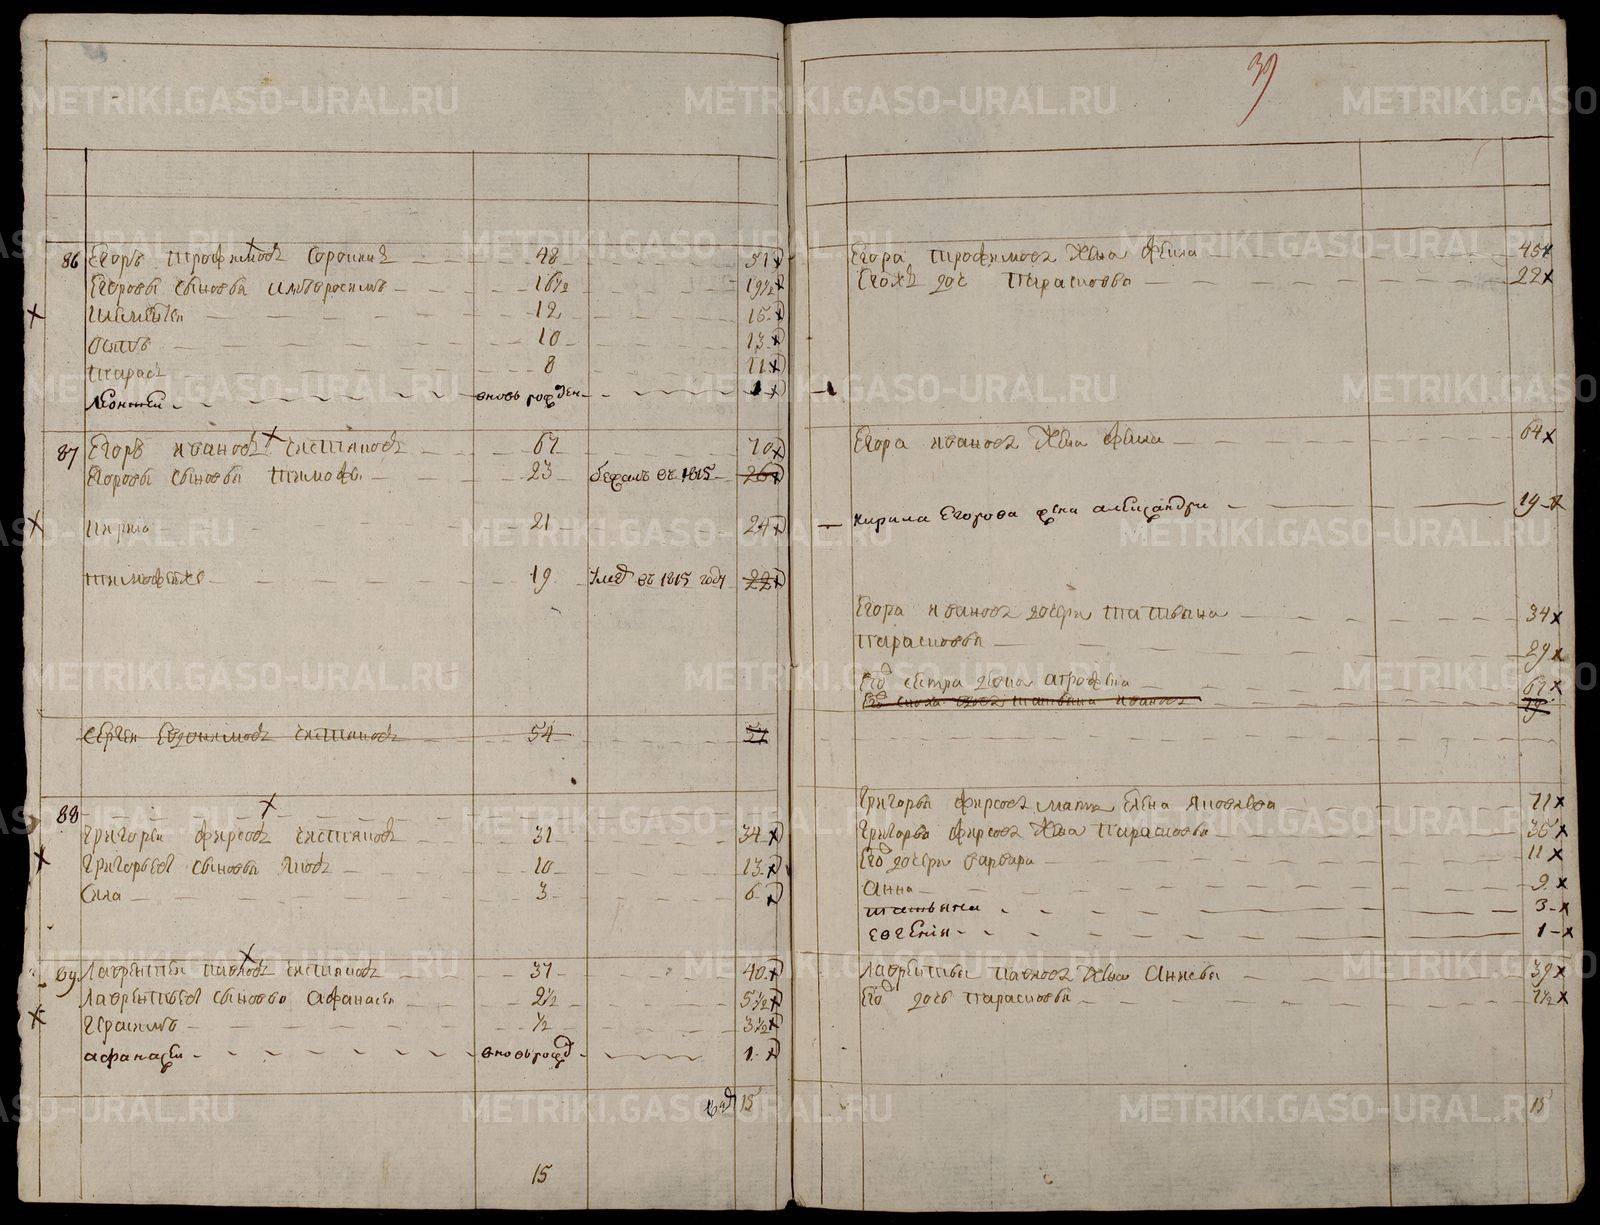 39
86 Егоръ Трофимовъ Сорокинъ 48 51
Егоровы сыновья Амвросимъ 16½ 19½
12 15
Осипъ 10 13
Тарасъ 8 11
Леонтей вновь рожден 1
87 Егоръ Ивановъ 67 70
Егоровы сыновья Тимофѣй 23 бежалъ въ 1815 26
Кирило 21 24
Тимофей же 19 умеръ въ 1815 году 22
Сергей Евдокимовъ 54 57
88
Григорей Фирсовъ 31 34
Григорьевы сыновья Яковъ 10 13
Сила 3 6
89 Лаврентей Павловъ 37 40
Лаврентьевы сыновья Афанасей 2½ 5½
Герасимъ ½ 3½
Афанасей вновь рожд 1
15
15
Егора Трофимова жена Фекла 45
Ево же дочь Парасковья 22
Егора Иванова жена 64
Кирила Егорова жена Александра 19
Егора Иванова дочери Татьяна 34
Парасковья 29
Его сестра девка Агрофена 67
Татьяна Иванова
Григорья Фирсова мать Елена Яковлева 71
Григорья Фирсова жена Парасковья 36
Его дочери Варвара 11
Анна 9
Татьяна 3
Евгения 1
Лаврентья Павлова жена 39
Его дочь Парасковья 7½
15
METRIKI.GASO-URAL.RU